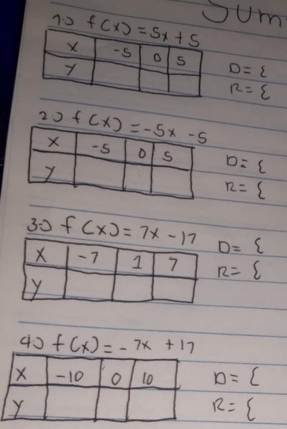 SUM
1.) f(x) = 5x + 5
x -5 0 5
y
D = {
R = {
2.) f(x) = -5x - 5
x -5 0 5
y
D = {
R = {
3.) f(x) = 7x - 17
x -7 1 7
y
D = {
R = {
4.) f(x) = -7x + 17
x -10 0 10
y
D = {
R = {